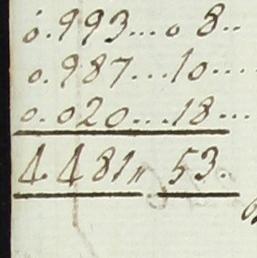 0.993...0 8..
0.987...10....
0.020...18...
4.481,, 53.